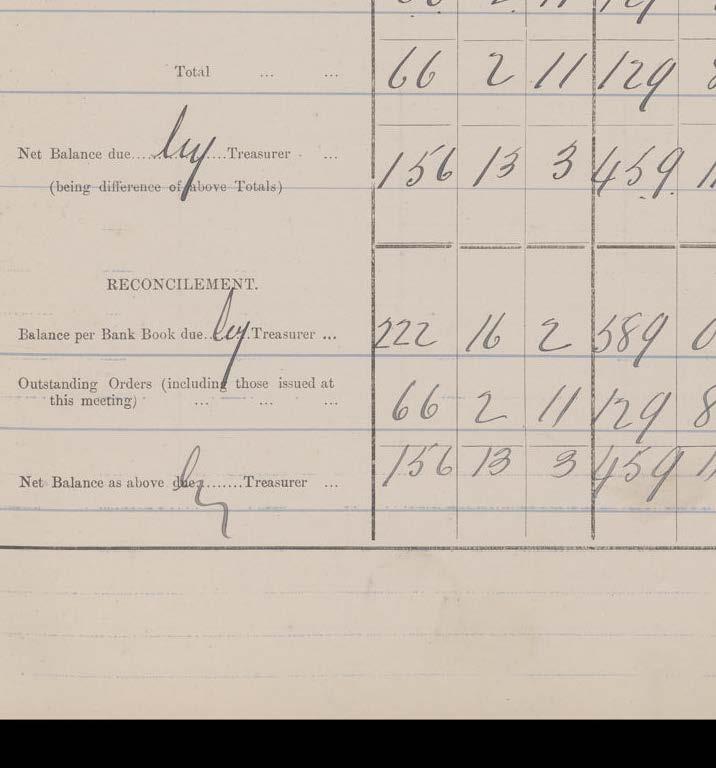 Total ... ... 66 2 11 129 8
Net Balance due....by....Treasurer ... 156 13 3 459 11
(being difference of above Totals)
RECONCILEMENT.
Balance per Bank Book due..by.Treasurer ... 222 16 2 589 0
Outstanding Orders (including those issued at
this meeting) ... ... ... 66 2 11 129 8
Net Balance as above due by.......Treasurer ... 156 13 3 459 11